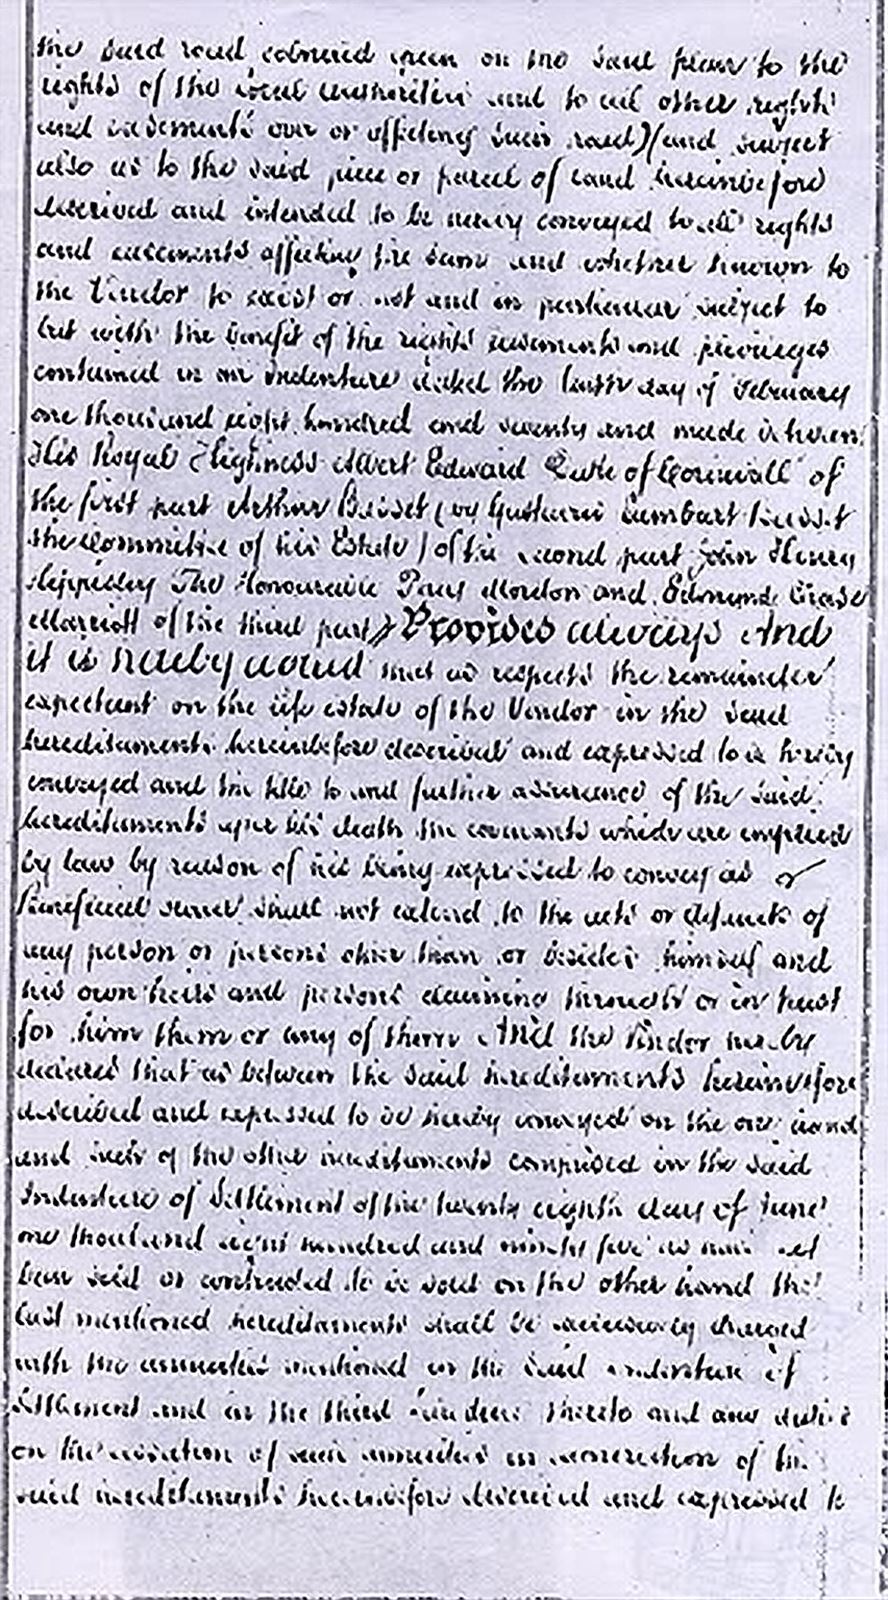 the said road coloured green on the said plan to the
rights of the local authorities and to all other rights
and easements over or affecting such road) (and subject
also as to the said piece or parcel of land hereinbefore
described and intended to be hereby conveyed to all rights
and easements affecting the same and whether known to
the Vendor to exist or not and in particular subject to
but with the benefit of the rights easements and privileges
contained in an Indenture dated the day of February
one thousand eight hundred and seventy and made between
His Royal Highness Albert Edward Duke of Cornwall of
the first part Arthur Basset (by Gustavus Lambart Basset
the Committee of his Estate) of the second part John Henry
Hippisley The Honourable Percy and Edmund
Marriott of the third part) Provided always And
it is hereby agreed that as respects the remainder
expectant on the life estate of the Vendor in the said
hereditaments hereinbefore described and expressed to be hereby
conveyed and the title to and further assurance of the said
hereditaments after his death the covenants which are implied
by law by reason of his being expressed to convey as
Beneficial owner shall not extend to the acts or defaults of
any person or persons other than or besides himself and
his own heirs and persons claiming through or in trust
for him them or any of them And the Vendor hereby
declares that as between the said hereditaments hereinbefore
described and expressed to be hereby conveyed on the one hand
and such of the other hereditaments comprised in the said
Indenture of Settlement of the twenty eighth day of June
one thousand eight hundred and ninety five as have not
been sold or contracted to be sold on the other hand the
last mentioned hereditaments shall be exclusively charged
with the annuities mentioned in the said Indenture of
Settlement and in the third thereto and any duties
on the cessation of such annuities in exoneration of the
said hereditaments hereinbefore described and expressed to